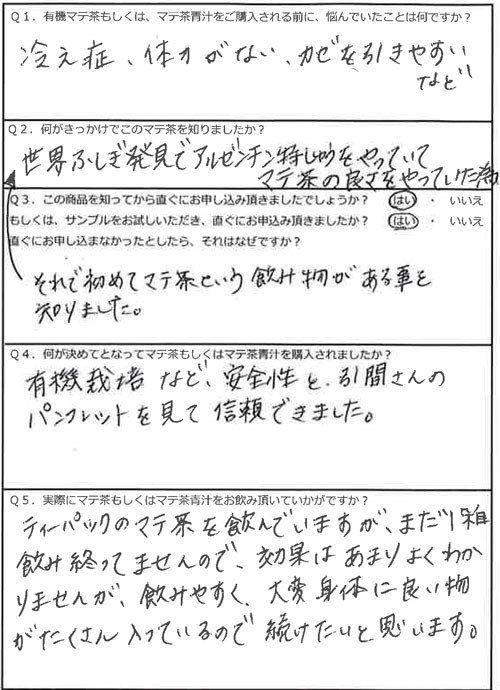 Q1．有機マテ茶もしくは、マテ茶青汁をご購入される前に、悩んでいたことは何ですか？
冷え症、体力がない、カゼを引きやすい
など
Q2．何がきっかけでこのマテ茶を知りましたか？
世界ふしぎ発見でアルゼンチン特しゅうをやっていて
マテ茶の良さをやっていた為
Q3．この商品を知ってから直ぐにお申し込み頂きましたでしょうか？ はい ・ いいえ
もしくは、サンプルをお試しいただき、直ぐにお申込み頂きましたか？ はい ・ いいえ
直ぐにお申し込まなかったとしたら、それはなぜですか？
それで初めてマテ茶という飲み物がある事を
知りました。
Q4．何が決めてとなってマテ茶もしくはマテ茶青汁を購入されましたか？
有機栽培など、安全性と、引間さんの
パンフレットを見て信頼できました。
Q5．実際にマテ茶もしくはマテ茶青汁をお飲み頂いていかがですか？
ティーパックのマテ茶を飲んでいますが、まだ1箱
飲み終ってませんので、効果はあまりよくわか
りませんが、飲みやすく、大変身体に良い物
がたくさん入っているので続けたいと思います。